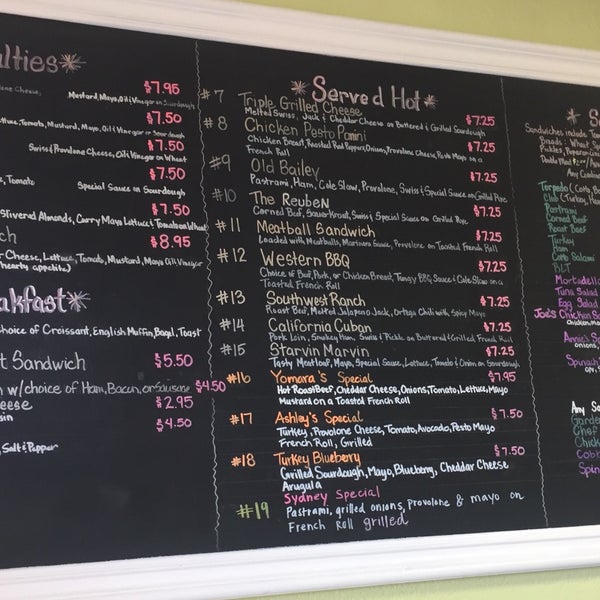 alties
$7.95
Mustard, Mayo, Oil & Vinegar on Sourdough
$7.50
Tomato, Mustard, Mayo, Oil & Vinegar or Sourdough
$7.50
Swiss & Provolone Cheese, Oil & Vinegar on Wheat
$7.50
Tomato Special Sauce on Sourdough
$7.50
Slivered Almonds, Curry Mayo Lettuce & Tomato on Wheat
ch
$8.95
Cheese, Lettuce, Tomato, Mustard, Mayo Oil, Vinegar
hearty appetite)
akfast
choice of Croissant, English Muffin, Bagel, Toast
t Sandwich $5.50
w/choice of Ham, Bacon, or Sausage $4.50
eese $2.95
$4.50
Salt & Pepper
Served Hot
#7 Triple Grilled Cheese
Melted Swiss, Jack & Cheddar Cheese on Buttered & Grilled Sourdough
$7.25
#8 Chicken Pesto Panini
Chicken Breast, Roasted Red Peppers, Onions, Provolone Cheese, Pesto Mayo on a
French Roll
$7.25
#9 Old Bailey
Pastrami, Ham, Cole Slaw, Provolone, Swiss & Special Sauce on Grilled Rye
$7.25
#10 The Reuben
Corned Beef, Sauer-Kraut, Swiss & Special Sauce on Grilled Rye
$7.25
#11 Meatball Sandwich
Loaded with Meatballs, Marinara Sauce, Provolone on Toasted French Roll
$7.25
#12 Western BBQ
Choice of Beef, Pork, or Chicken Breast, Tangy BBQ Sauce & Cole Slaw on a
Toasted French Roll
$7.25
#13 Southwest Ranch $7.25
Roast Beef, Melted Jalapeno Jack, Ortega Chili with Spicy Mayo
#14 California Cuban $7.25
Pork Loin, Smokey Ham, Swiss & Pickle on Buttered & Grilled French Roll
#15 Starvin Marvin $7.25
Tasty Meatloaf, Mayo, Special Sauce, Lettuce, Tomato & Onion on Sourdough
#16 Yomara's Special $7.95
Hot Roast Beef, Cheddar Cheese, Onions, Tomato, Lettuce, Mayo
Mustard on a Toasted French Roll
#17 Ashley's Special $7.50
Turkey, Provolone Cheese, Tomato, Avocado, Pesto Mayo
French Roll, Grilled
#18 Turkey Blueberry $7.50
Grilled Sourdough, Mayo, Blueberry, Cheddar Cheese
Arugula
Sydney Special
#19 Pastrami, grilled onions, provolone & mayo on
French Roll grilled
S
Sandwiches include
Breads: Wheat
Pickles,
Double Meat
Any
Torpedo
Club (Turkey,
Pastrami
Corned Beef
Roast Beef
Turkey
Ham
Cotto Salami
BLT
Mortadella
Tuna Salad
Egg Salad
Joe's Chicken
Annie's
onions,
Spinach
Any
Garde
Chef
Chick
Cobb
Spin